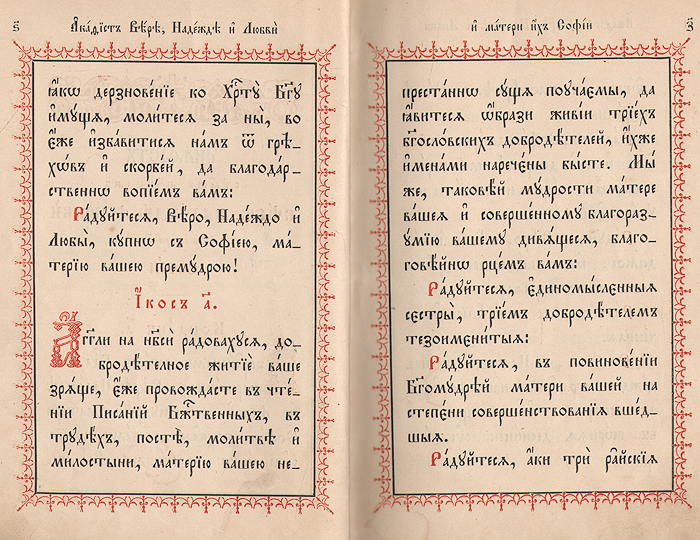 ѕ҃ А҆ка́ѳїстъ Вѣ́рѣ, Наде́ждѣ и҆ Любвѝ
ꙗ҆́кѡ дерзнове́нїе ко Хрⷭ҇тꙋ̀ Бг҃ꙋ
и҆мꙋ́щѧ, моли́тесѧ за ны̀, во
є҆́же и҆зба́витисѧ на́мъ ѿ грѣ-
хѡ́въ и҆ скорбе́й, да благода́р-
ственнѡ вопїе́мъ ва́мъ:
Ра́дꙋйтесѧ, Вѣ́ро, Наде́ждо и҆
Любы̀, кꙋ́пнѡ съ Софі́ею, ма́-
терїю ва́шею премꙋ́дрою!
І҆́косъ а҃.
А҆́гг҃ли на нб҃сѝ ра́довахꙋсѧ, до-
бродѣ́тельное житїѐ ва́ше
зрѧ́ще, є҆́же провожда́сте въ чте́-
нїи Писа́нїй Бж҃е́ственныхъ, въ
трꙋдѣ́хъ, постѣ̀, моли́твѣ и҆
ми́лостыни, ма́терїю ва́шею не-
и҆ ма́тери и҆́хъ Софі́и з҃
преста́ннѡ сꙋ́щѧ поꙋча́ємы, да
ꙗ҆ви́тесѧ ѡ҆́брази живі́и трїе́хъ
бг҃осло́вскихъ добродѣ́телей, и҆́хже
и҆мена́ми нарече́ны бы́сте. Мы́
же, таковѣ́й мꙋ́дрости ма́тере
ва́шеѧ и҆ соверше́нномꙋ благораз-
ꙋ́мїю ва́шемꙋ дивѧ́щесѧ, благо-
говѣ́йнѡ рце́мъ ва́мъ:
Ра́дꙋйтесѧ, є҆диномы́сленныѧ
сє́стры, трїе́мъ добродѣ́телемъ
тезоимени́тыѧ:
Ра́дꙋйтесѧ, въ повинове́нїи
Бг҃омꙋ́дрѣй ма́тери ва́шей на
степе́ни соверше́нствованїѧ вше́д-
шыѧ.
Ра́дꙋйтесѧ, а҆́ки трѝ ра́йскїѧ